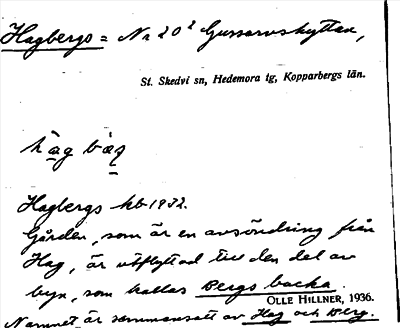 Hagbergs = Nr 20² Gussarvshyttan,
St. Skedvi sn, Hedemora tg, Kopparbergs län.
hag bærg
Hagbergs kb 1932.
Gården, som är en avsöndring från
Hag, är utflyttad till den del av
byn, som kallas Bergsbacka.
OLLE HILLNER, 1936.
Namnet är sammansatt av Hag och Berg.